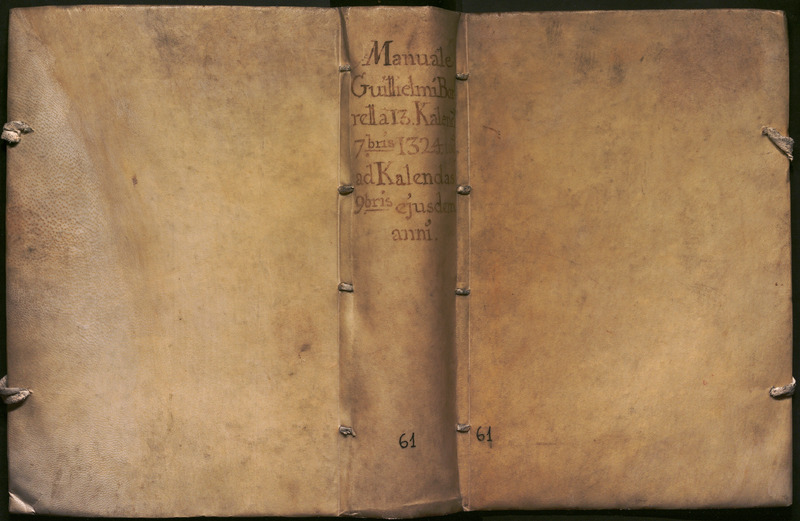 Manuale
Guillielmi Bo
rella 13. Kalend
7bris 1324
ad Kalendas
9bris ejusdem
anni.
61
61